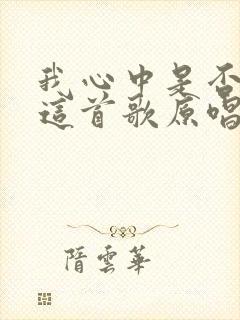 我心中是否
這首歌原唱
隋雲華